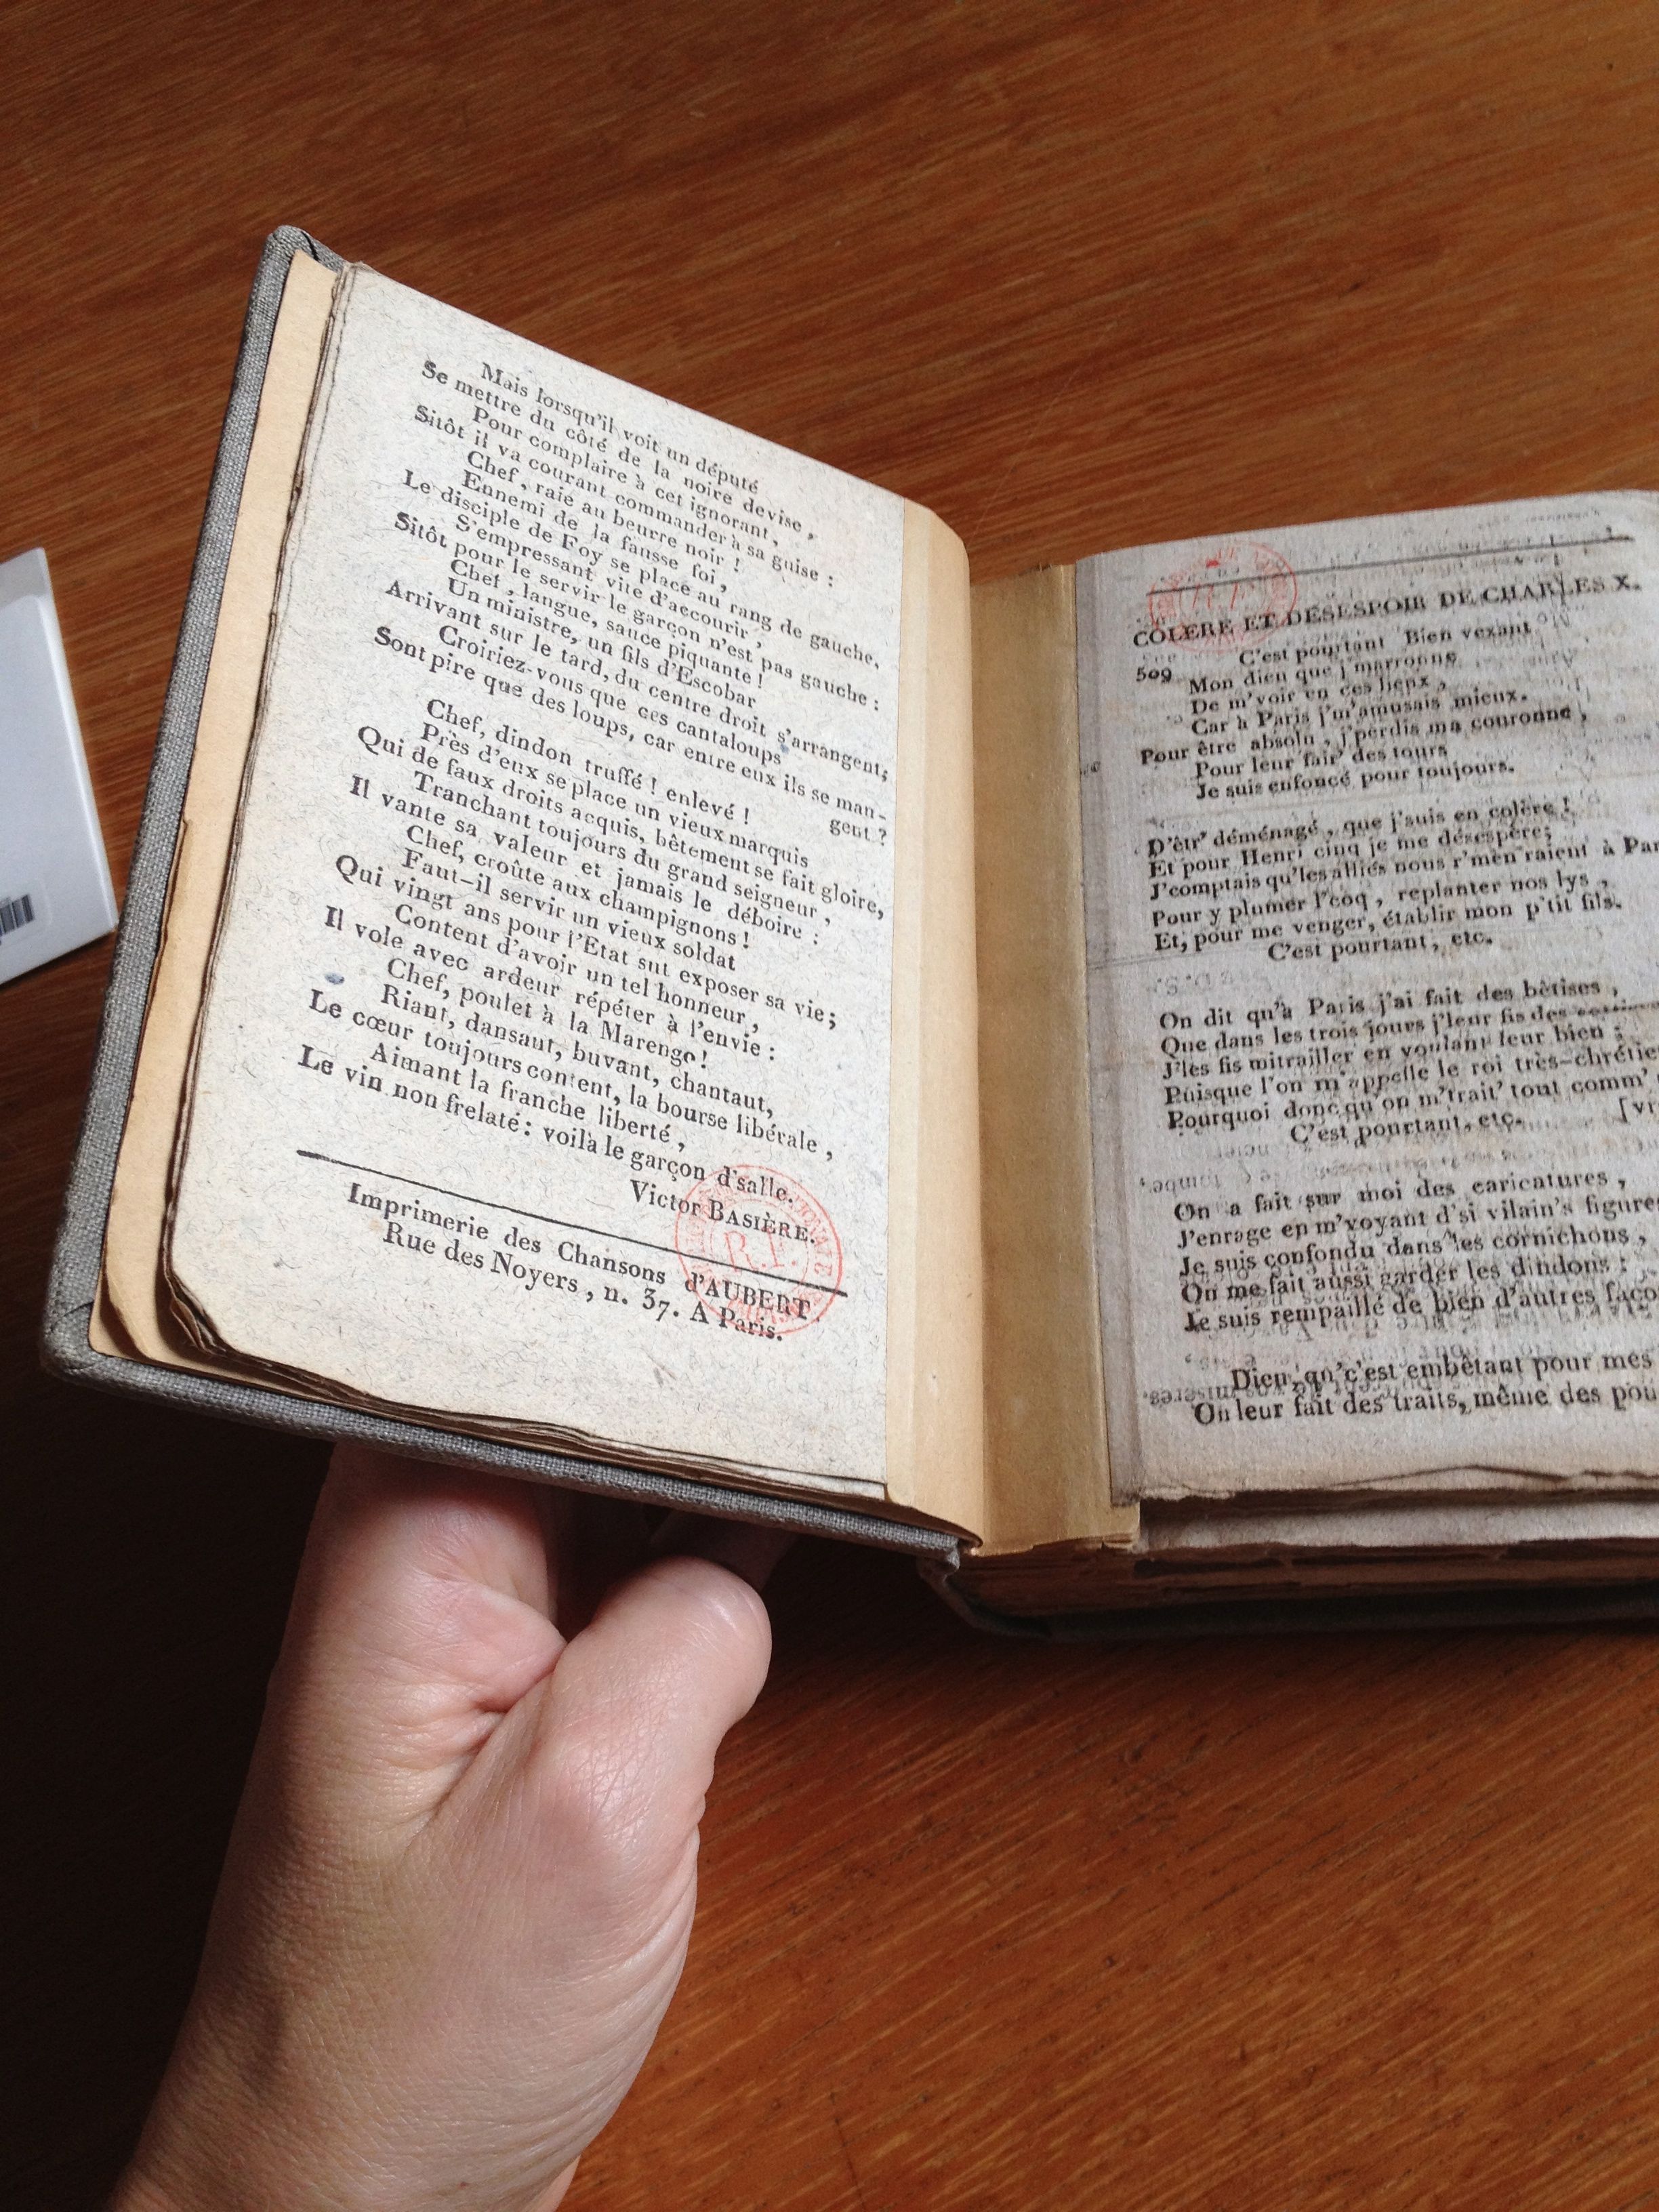 Mais lorsqu'il voit un député
Se mettre du côté de la noire devise,
Pour complaire à cet ignorant,
Sitôt il va courant commander à sa guise:
Chef, raie au beurre noir!
Ennemi de la fausse foi,
Le disciple de Foy se place au rang de gauche,
S'empressant vite d'accourir,
Sitôt pour le servir le garçon n'est pas gauche:
Chef, langue, sauce piquante!
Un ministre, un fils d'Escobar
Arrivant sur le tard, du centre droit s'arrangent;
Croiriez-vous que ces cantaloups
Sont pire que des loups, car entre eux ils se man-
gent?
Chef, dindon truffé! enlevé!
Près d'eux se place un vieux marquis
Qui de faux droits acquis, bêtement se fait gloire,
Tranchant toujours du grand seigneur,
Il vante sa valeur et jamais le déboire:
Chef, croûte aux champignons!
Faut-il servir un vieux soldat
Qui vingt ans pour l'Etat sut exposer sa vie;
Content d'avoir un tel honneur,
Il vole avec ardeur répéter à l'envie:
Chef, poulet à la Marengo!
Riant, dansant, buvant, chantant,
Le cœur toujours content, la bourse libérale,
Aimant la franche liberté,
Le vin non frelaté: voilà le garçon d'salle.
Victor BASIÈRE.
Imprimerie des Chansons d'AUBERT
Rue des Noyers, n. 37. A Paris.
R.F.
COLÈRE ET DÉSESPOIR DE CHARLES X.
C'est pourtant Bien vexant
509
Mon dieu que j'marronne
De m'voir en ces lieux,
Car à Paris j'm'amusais mieux.
Pour être absolu, j'perdis ma couronne,
Pour leur fair' des tours
Je suis enfoncé pour toujours.
D'êtr' déménagé, que j'suis en colère!
Et pour Henri cinq je me désespère;
J'comptais qu'les alliés nous r'mèn'raient à Par
Pour y plumer l'coq, replanter nos lys,
Et, pour me venger, établir mon p'tit fils.
C'est pourtant, etc.
On dit qu'à Paris j'ai fait des bêtises,
Que dans les trois jours j'leur fis des
J'les fis mitrailler en voulant leur bien;
Puisque l'on m'appelle le roi très-chrétie
Pourquoi donc qu'on m'trait' tout comm'
[vr
C'est pourtant, etc.
On a fait sur moi des caricatures,
J'enrage en m'voyant d'si vilain's figure
Je suis confondu dans les cornichons,
On me fait aussi garder les dindons;
Je suis rempaillé de bien d'autres faço
Dieu, qu'c'est embêtant pour mes
On leur fait des traits, même des pou